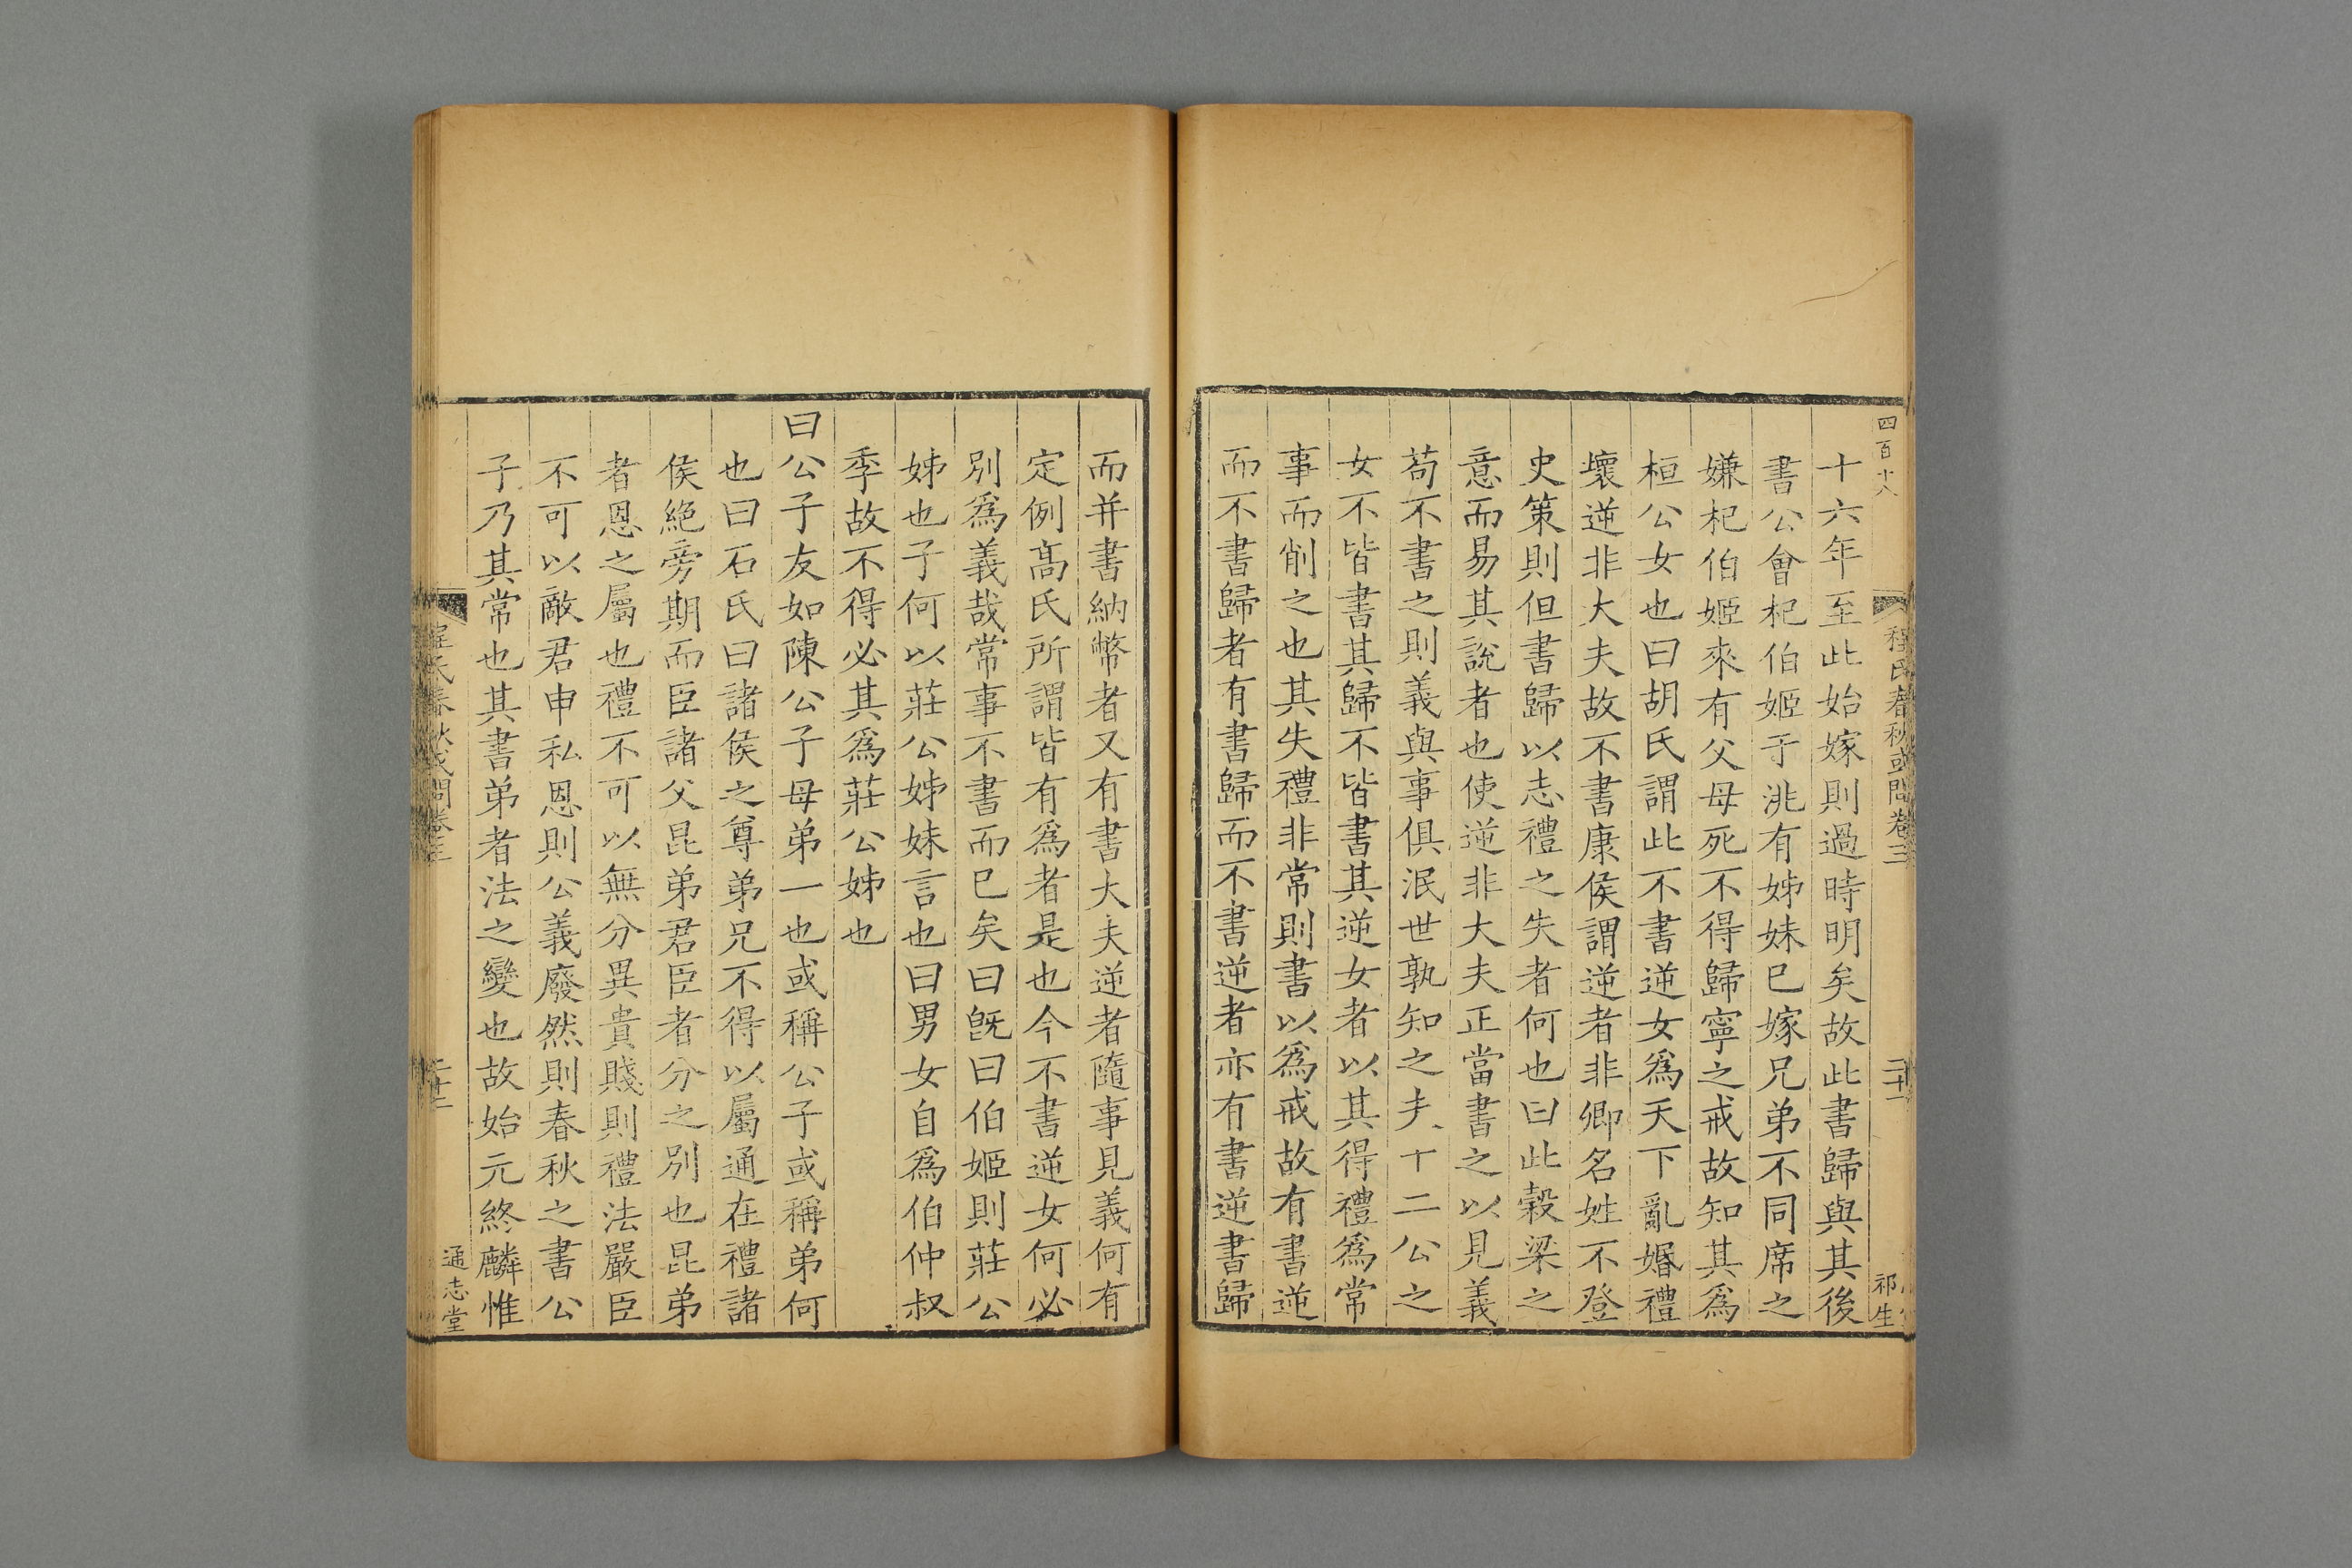 四百十八
程氏春秋或問卷三
二十一
祁生
十六年至此始嫁則過時明矣故此書歸與其後
書公會杞伯姬于洮有姊妹已嫁兄弟不同席之
嫌杞伯姬來有父母死不得歸寧之戒故知其爲
桓公女也曰胡氏謂此不書逆女爲天下亂婚禮
壞逆非大夫故不書康侯謂逆者非卿名姓不登
史策則但書歸以志禮之失者何也曰此穀梁之
意而易其說者也使逆非大夫正當書之以見義
苟不書之則義與事俱泯世孰知之夫十二公之
女不皆書其歸不皆書其逆女者以其得禮爲常
事而削之也其失禮非常則書以爲戒故有書逆
而不書歸者有書歸而不書逆者亦有書逆書歸
而并書納幣者又有書大夫逆者隨事見義何有
定例髙氏所謂皆有爲者是也今不書逆女何必
別爲義哉常事不書而已矣曰旣曰伯姬則莊公
姊也子何以莊公姊妹言也曰男女自爲伯仲叔
季故不得必其爲莊公姊也
曰公子友如陳公子母弟一也或稱公子或稱弟何
也曰石氏曰諸侯之尊弟兄不得以屬通在禮諸
侯絶旁期而臣諸父昆弟君臣者分之別也昆弟
者恩之屬也禮不可以無分異貴賤則禮法嚴臣
不可以敵君申私恩則公義廢然則春秋之書公
子乃其常也其書弟者法之變也故始元終麟惟
程氏春秋或問卷三
通志堂